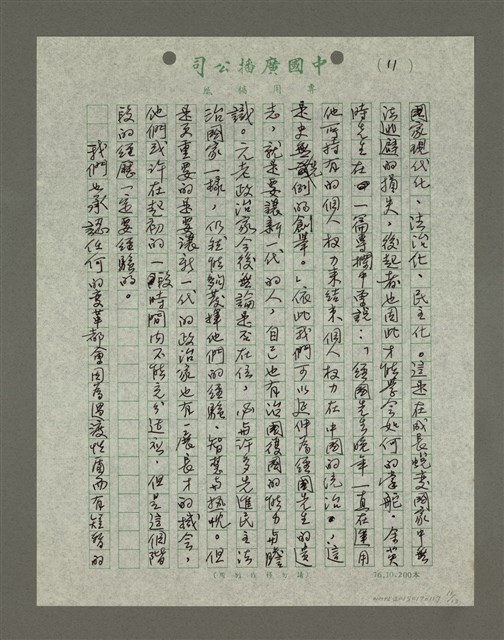 司公播廣國中
紙稿用專
(11)
國家現代化、法治化、民主化。這是在成長蛻變國家中無
法迴避的損失，後起者也因此才能學會如何的掌舵。余英
時先生在一篇專欄中寫說：「經國先生晚年一直在運用
他所持有的個人權力來結束個人權力在中國的統治，這
是史無前例的創舉。」依此我們可以延伸為經國先生的遺
志，就是要讓新一代的人，自己也有治國復國的能力與膽
識。元老政治家今後無論是否在位，必與許多先進民主法
治國家一樣，仍然能夠發揮他們的經驗、智慧與熱忱。但
是更重要的是要讓新一代的政治家也有一展長才的機會，
他們或許在起初的一段時間內不能充分適應，但是這個階
段的經歷一定要經驗的。
我們也承認任何的變革都會因為過渡性質而有短暫的
76.10.200本